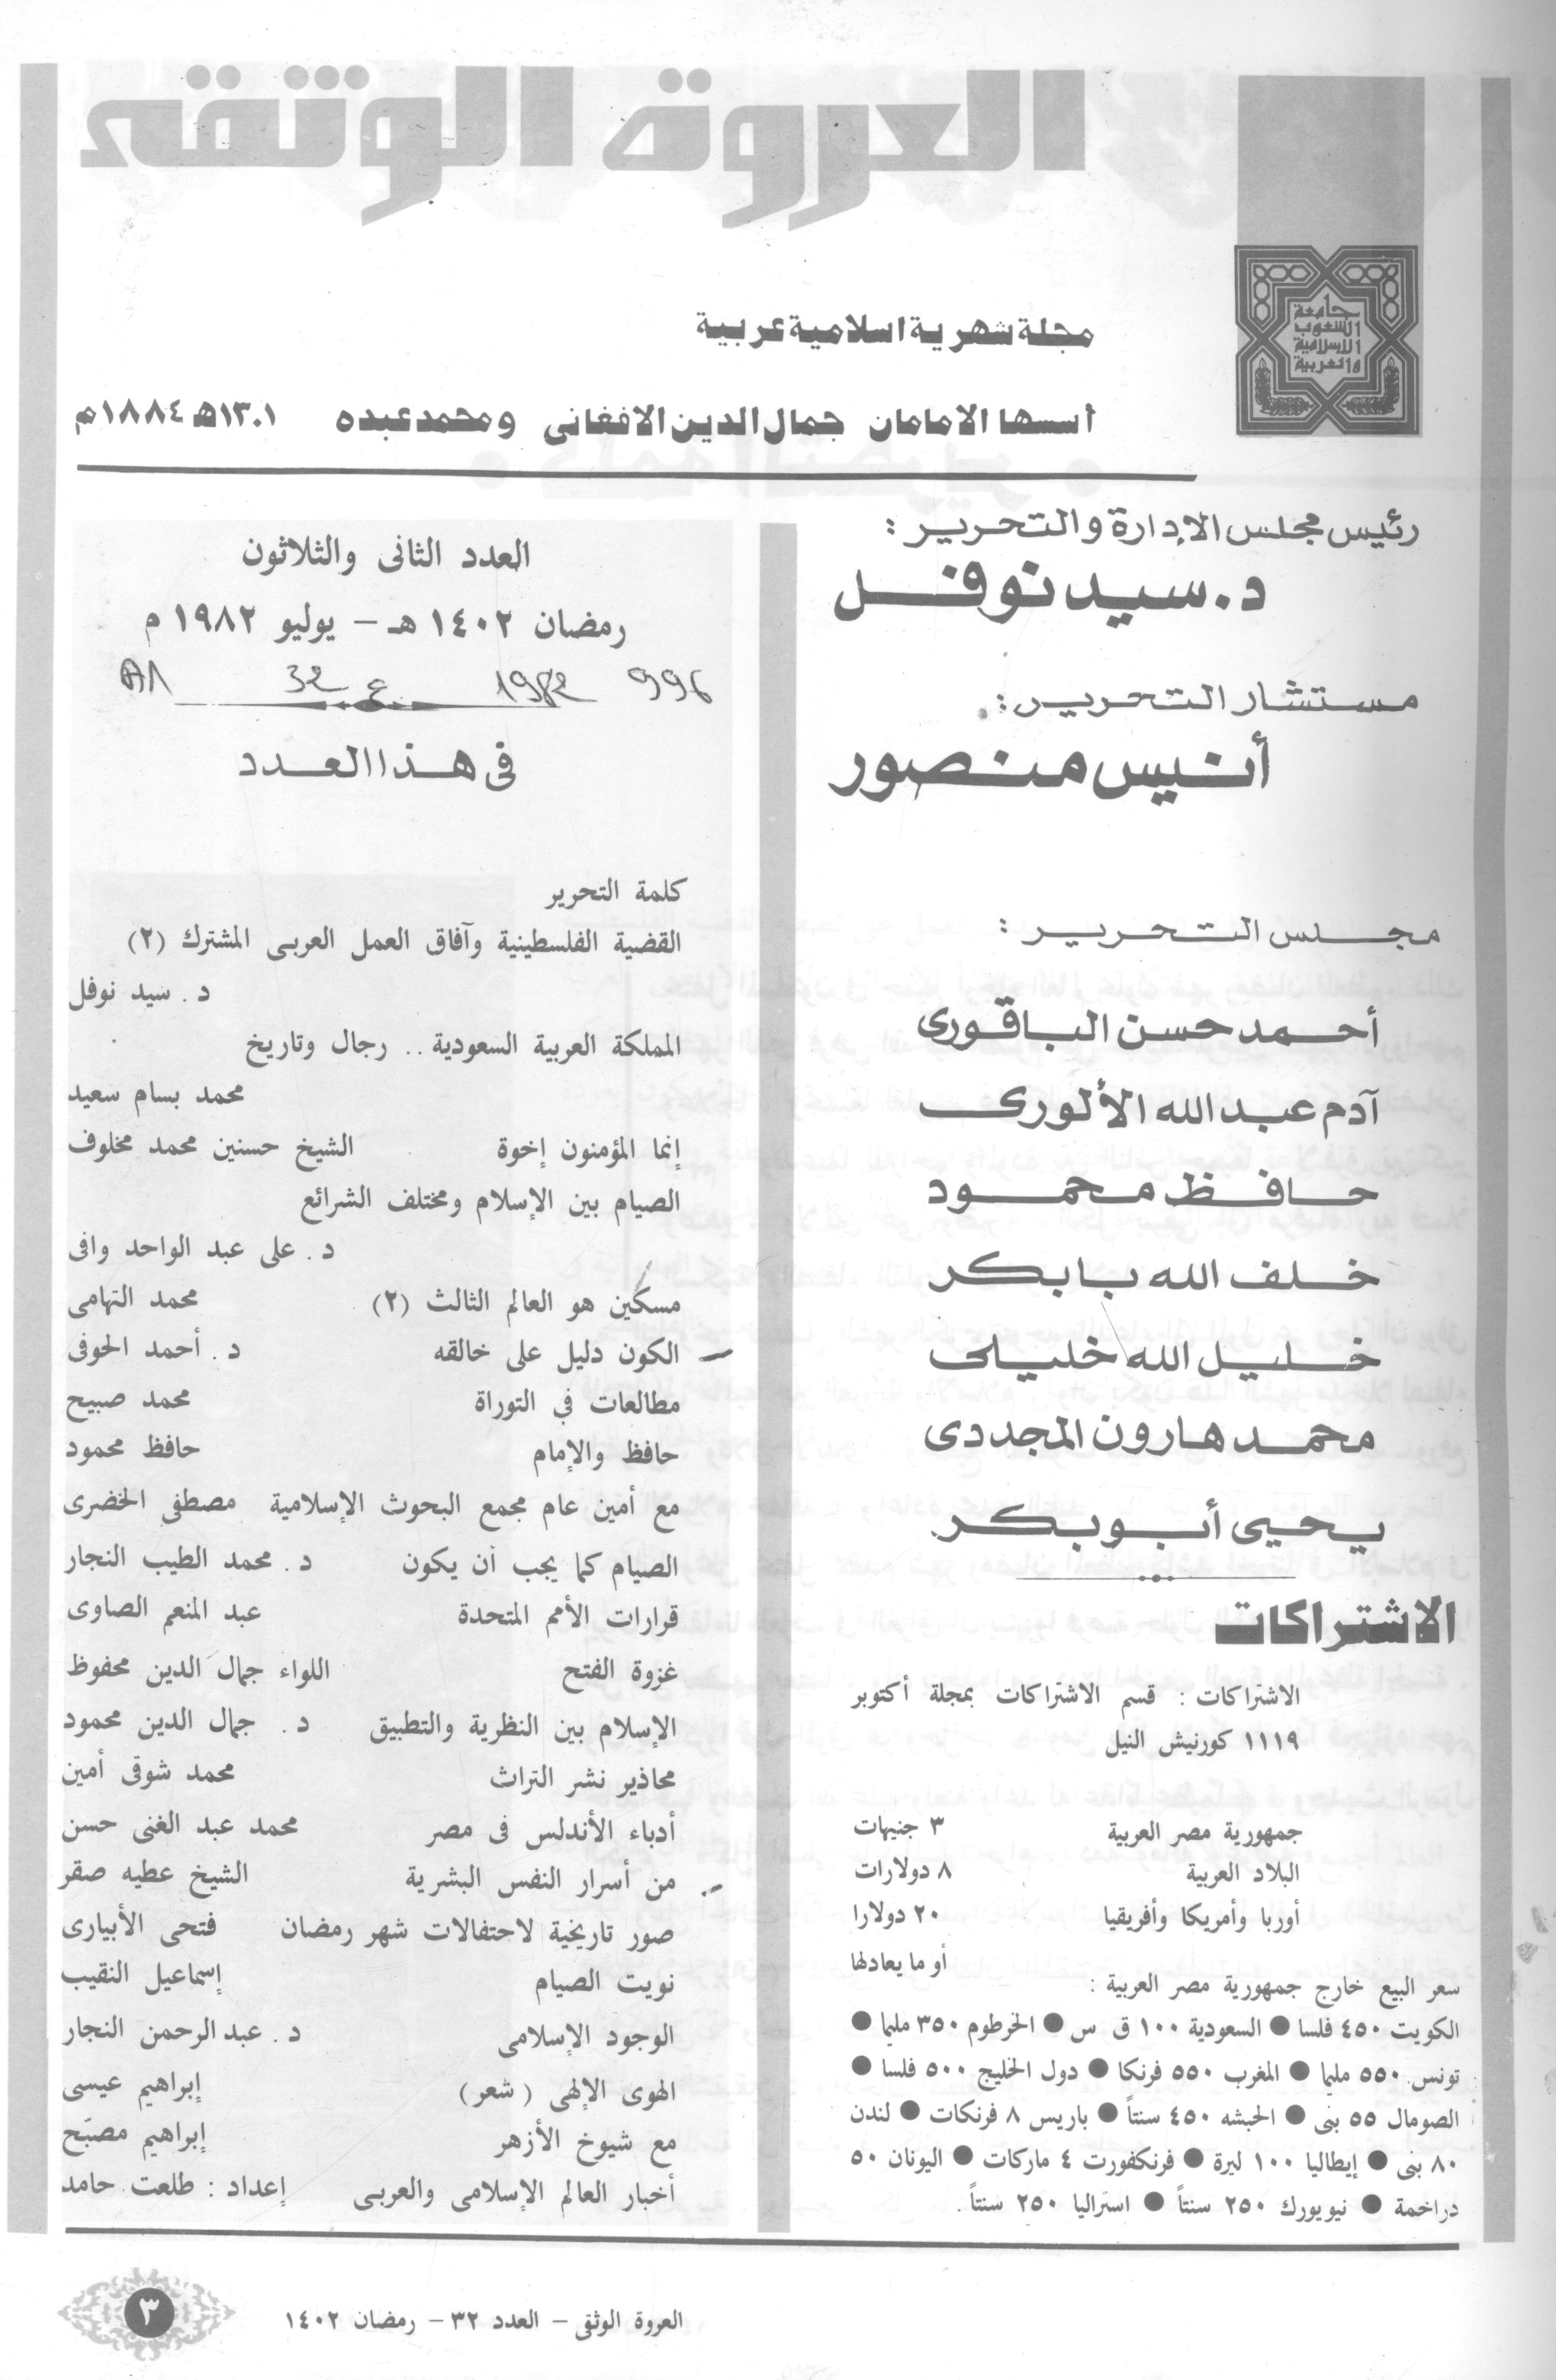 العروة الوثقى
جامعة
الشعوب
الإسلامية
والعربية
مجلة شهرية اسلامية عربية
أسسها الامامان جمال الدين الافغانى ومحمد عبده ١٣٠١هـ ١٨٨٤م
رئيس مجلس الإدارة والتحرير :
د. سيد نوفل
مستشار التحرير :
أنيس منصور
مجلس التحرير :
أحمد حسن الباقورى
آدم عبد الله الألورى
حافظ محمود
خلف الله بابكر
خليل الله خليلى
محمد هارون المجددى
يحيى أبو بكر
الاشتراكات
الاشتراكات : قسم الاشتراكات بمجلة أكتوبر
١١١٩ كورنيش النيل
جمهورية مصر العربية ٣ جنيهات
البلاد العربية ٨ دولارات
أوربا وأمريكا وأفريقيا ٢٠ دولارا
أو ما يعادلها
سعر البيع خارج جمهورية مصر العربية :
الكويت ٤٥٠ فلسا ● السعودية ١٠٠ ق س ● الخرطوم ٣٥٠ مليما ●
تونس ٥٥٠ مليما ● المغرب ٥٥٠ فرنكا ● دول الخليج ٥٠٠ فلسا ●
الصومال ٥٥ بنى ● الحبشه ٤٥٠ سنتاً ● باريس ٨ فرنكات ● لندن
٨٠ بنى ● إيطاليا ١٠٠ ليرة ● فرنكفورت ٤ ماركات ● اليونان ٥٠
دراخمة ● نيويورك ٢٥٠ سنتاً ● استراليا ٢٥٠ سنتاً .
العدد الثانى والثلاثون
رمضان ١٤٠٢ هـ – يوليو ١٩٨٢ م
996 1982 ع 32
فى هذا العدد
كلمة التحرير
القضية الفلسطينية وآفاق العمل العربى المشترك (٢)
د . سيد نوفل
المملكة العربية السعودية .. رجال وتاريخ
محمد بسام سعيد
إنما المؤمنون إخوة الشيخ حسنين محمد مخلوف
الصيام بين الإسلام ومختلف الشرائع
د . على عبد الواحد وافى
مسكين هو العالم الثالث (٢) محمد التهامى
الكون دليل على خالقه د . أحمد الحوفى
مطالعات فى التوراة محمد صبيح
حافظ والإمام حافظ محمود
مع أمين عام مجمع البحوث الإسلامية مصطفى الخضرى
الصيام كما يجب أن يكون د . محمد الطيب النجار
قرارات الأمم المتحدة عبد المنعم الصاوى
غزوة الفتح اللواء جمال الدين محفوظ
الإسلام بين النظرية والتطبيق د . جمال الدين محمود
محاذير نشر التراث محمد شوقى أمين
أدباء الأندلس فى مصر محمد عبد الغنى حسن
من أسرار النفس البشرية الشيخ عطيه صقر
صور تاريخية لاحتفالات شهر رمضان فتحى الأبيارى
نويت الصيام إسماعيل النقيب
الوجود الإسلامى د . عبد الرحمن النجار
الهوى الإلهى ( شعر ) إبراهيم عيسى
مع شيوخ الأزهر إبراهيم مصبّح
أخبار العالم الإسلامى والعربى إعداد : طلعت حامد
العروة الوثقى – العدد ٣٢ – رمضان ١٤٠٢
٣